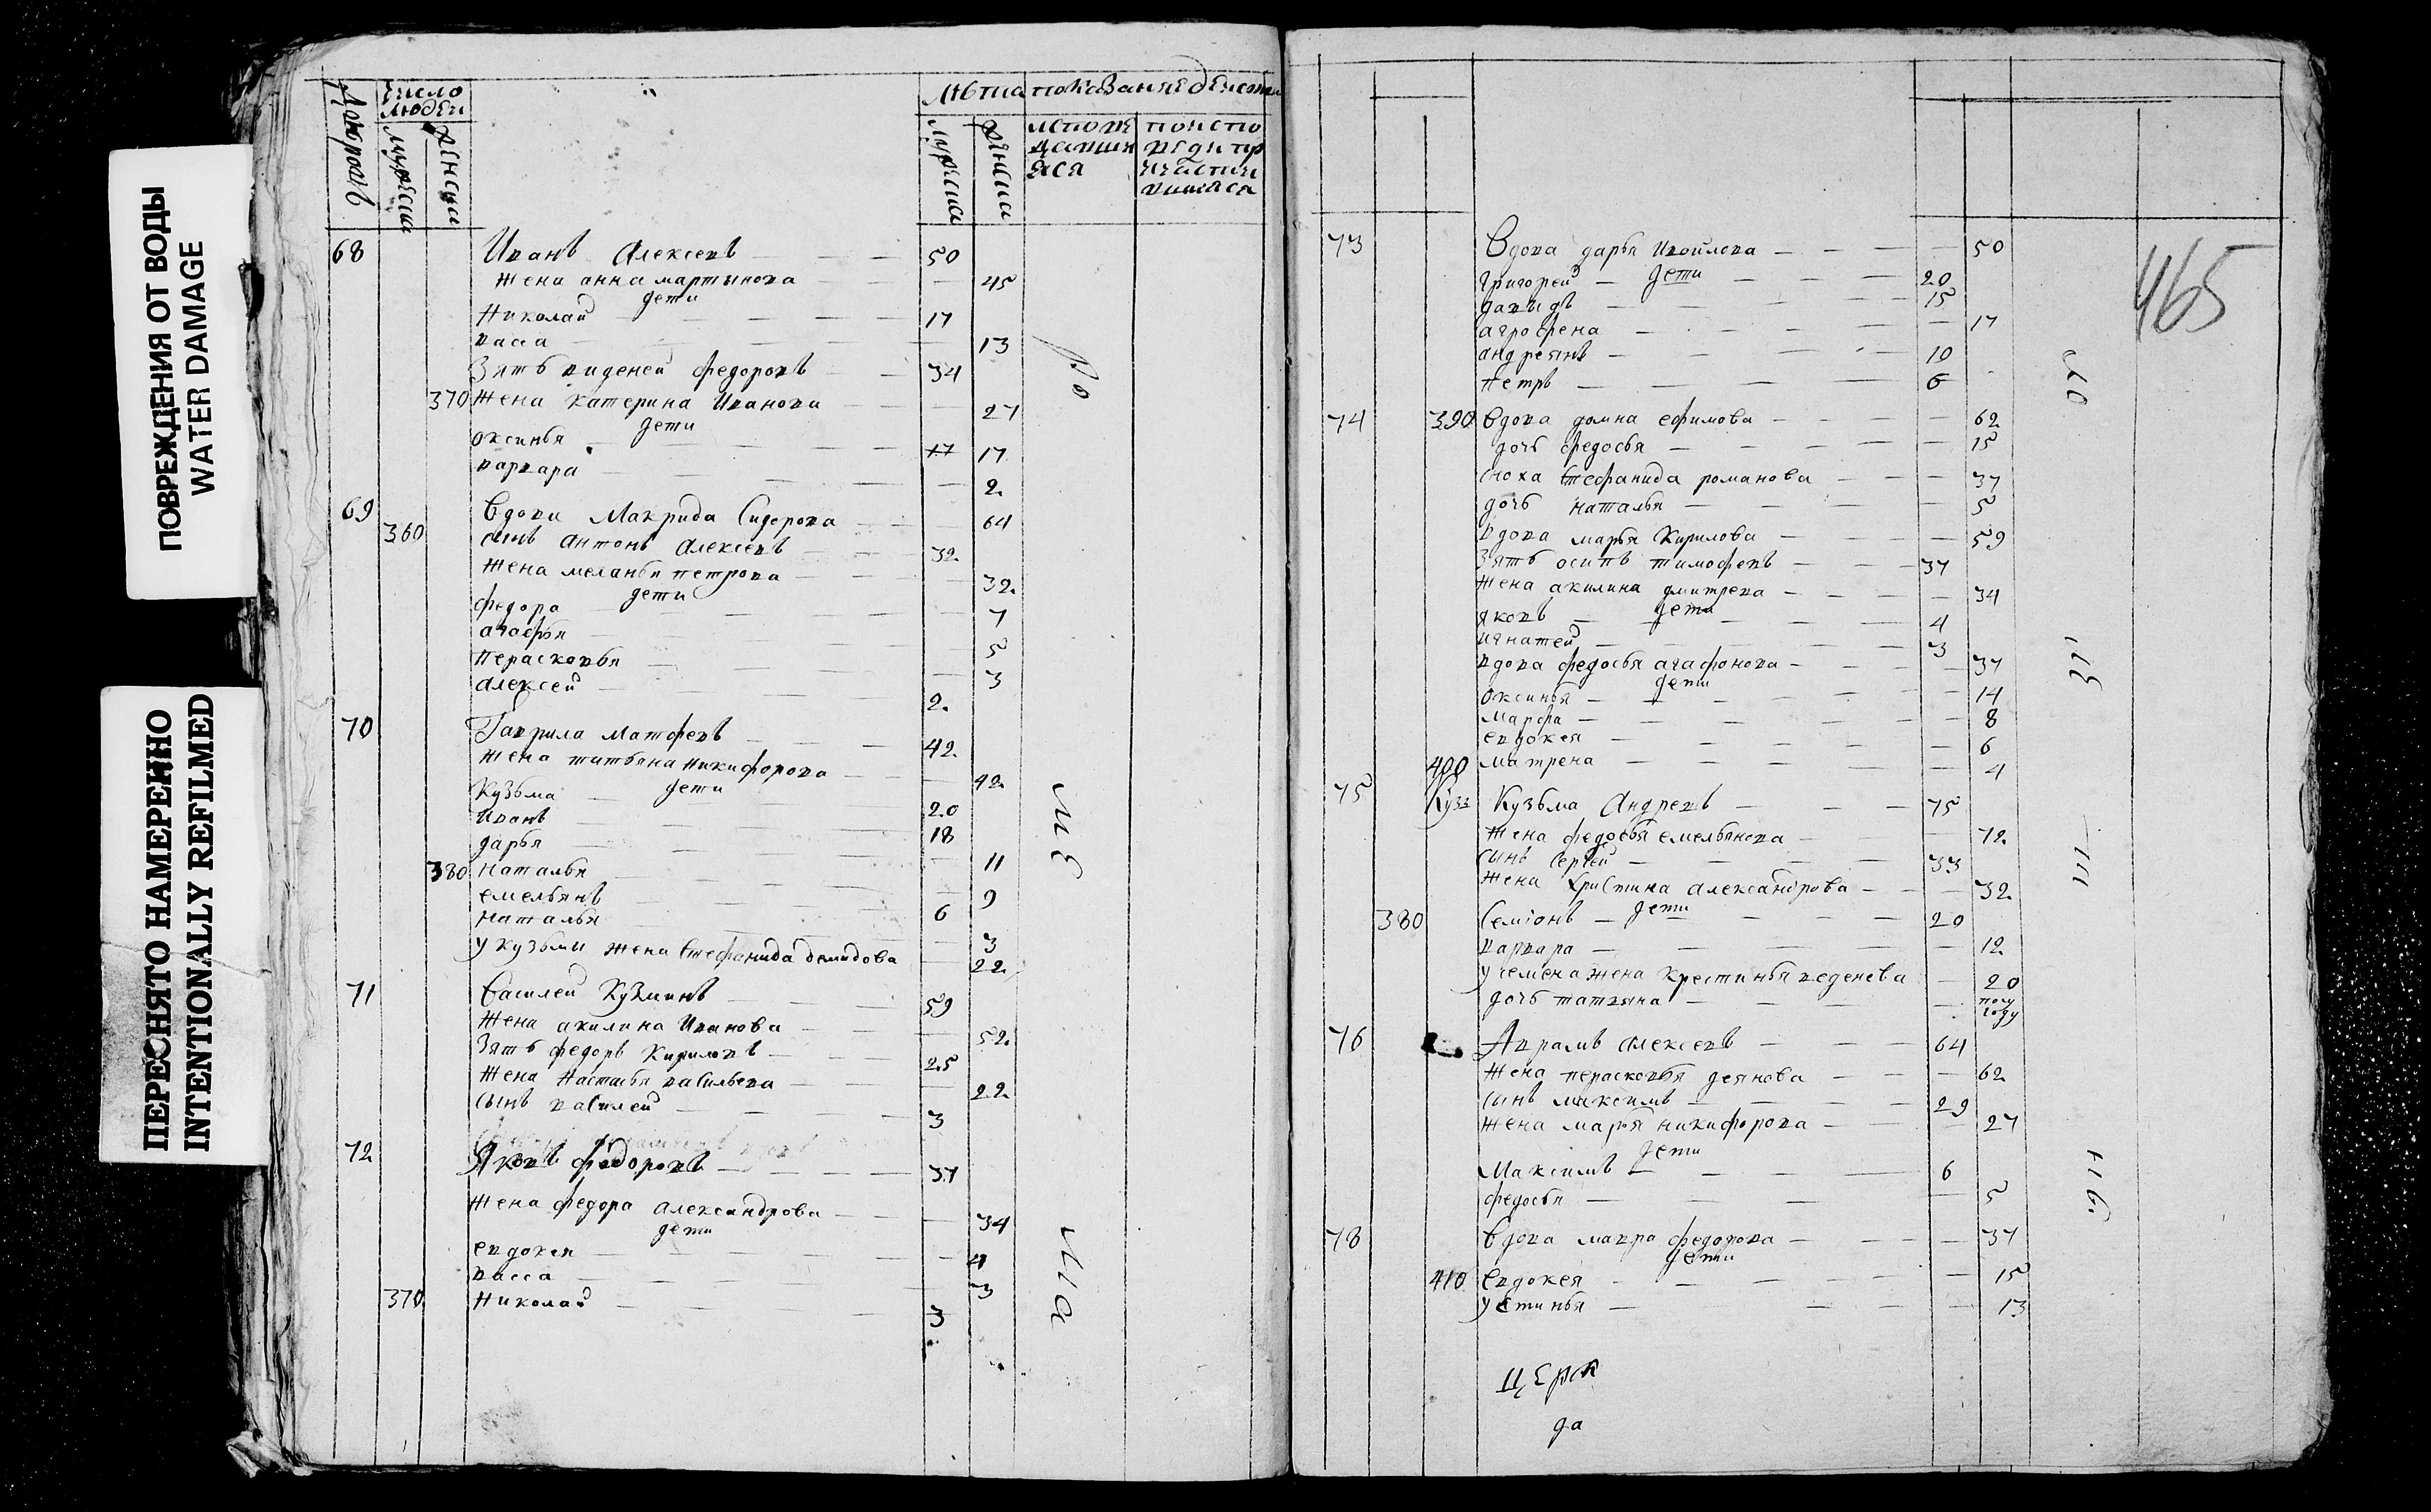 ПОВРЕЖДЕНИЯ ОТ ВОДЫ
WATER DAMAGE
ПЕРЕСНЯТО НАМЕРЕННО
INTENTIONALLY REFILMED
дворовъ
число людей
мужеска
женска
лѣта
показание
мужска
женска
68 Иванъ Алексевъ 50
жена анна мартинова 45
дети
Николай 17
васа 13
Зять виденей федоровъ 34
370 жена катерина Иванова 27
дети
оксинья 17 17
варвара 2.
69 Вдова Макрида Сидорова 64
360 сынъ антонъ алексевъ 32.
жена меланья петрова 32.
дети
федора 7
агафья 5
Перасковья 3
алексей 2.
70 Гаврила матфевъ 42.
жена татьяна никифорова 42.
дети
Кузьма 20
Иванъ 18
дарья 11
380 наталья 9
емельянъ 6
наталья 3
у кузьмы жена Стефанида демидова 22.
71 Василей Кузминъ 59
жена акилина Иванова 52.
Зять федоръ Кириловъ 25
жена настасья васильева 22.
сынъ василей 3
72 Яковъ федоровъ 37
жена федора александрова 34
дети
евдокея 4
васса 3
370 Николай 3
во
465
73 Вдова дарья Ивойлова 50
дети
григорей 20
давидъ 15
агрофена 17
андреянъ 10
петръ 6
74 390 Вдова домна ефимова 62
дочь федосья 15
сноха Стефанида романова 37
дочь наталья 5
вдова марья Кирилова 59
Зять осипъ тимофевъ 37
жена акилина дмитрева 34
дети
яковъ 4
игнатей 3
вдова федосья агафонова 37
дети
оксинья 14
марфа 8
евдокея 6
400 матрена 4
75 Кузьма Андревъ 75
жена федосья емельянова 72.
сынъ Сергей 33
жена христина александрова 32.
дети
380 Семionъ 20
варвара 12.
у семена жена крестинья веденева 20
дочь татьяна полу году
76 Аврамъ алексевъ 64
жена перасковья деянова 62.
сынъ максимъ 29
жена марья никифорова 27
дети
Максимъ 6
федосья 5
78 Вдова мавра федорова 37
дети
410 Евдокея 15
устинья 13
церк
да